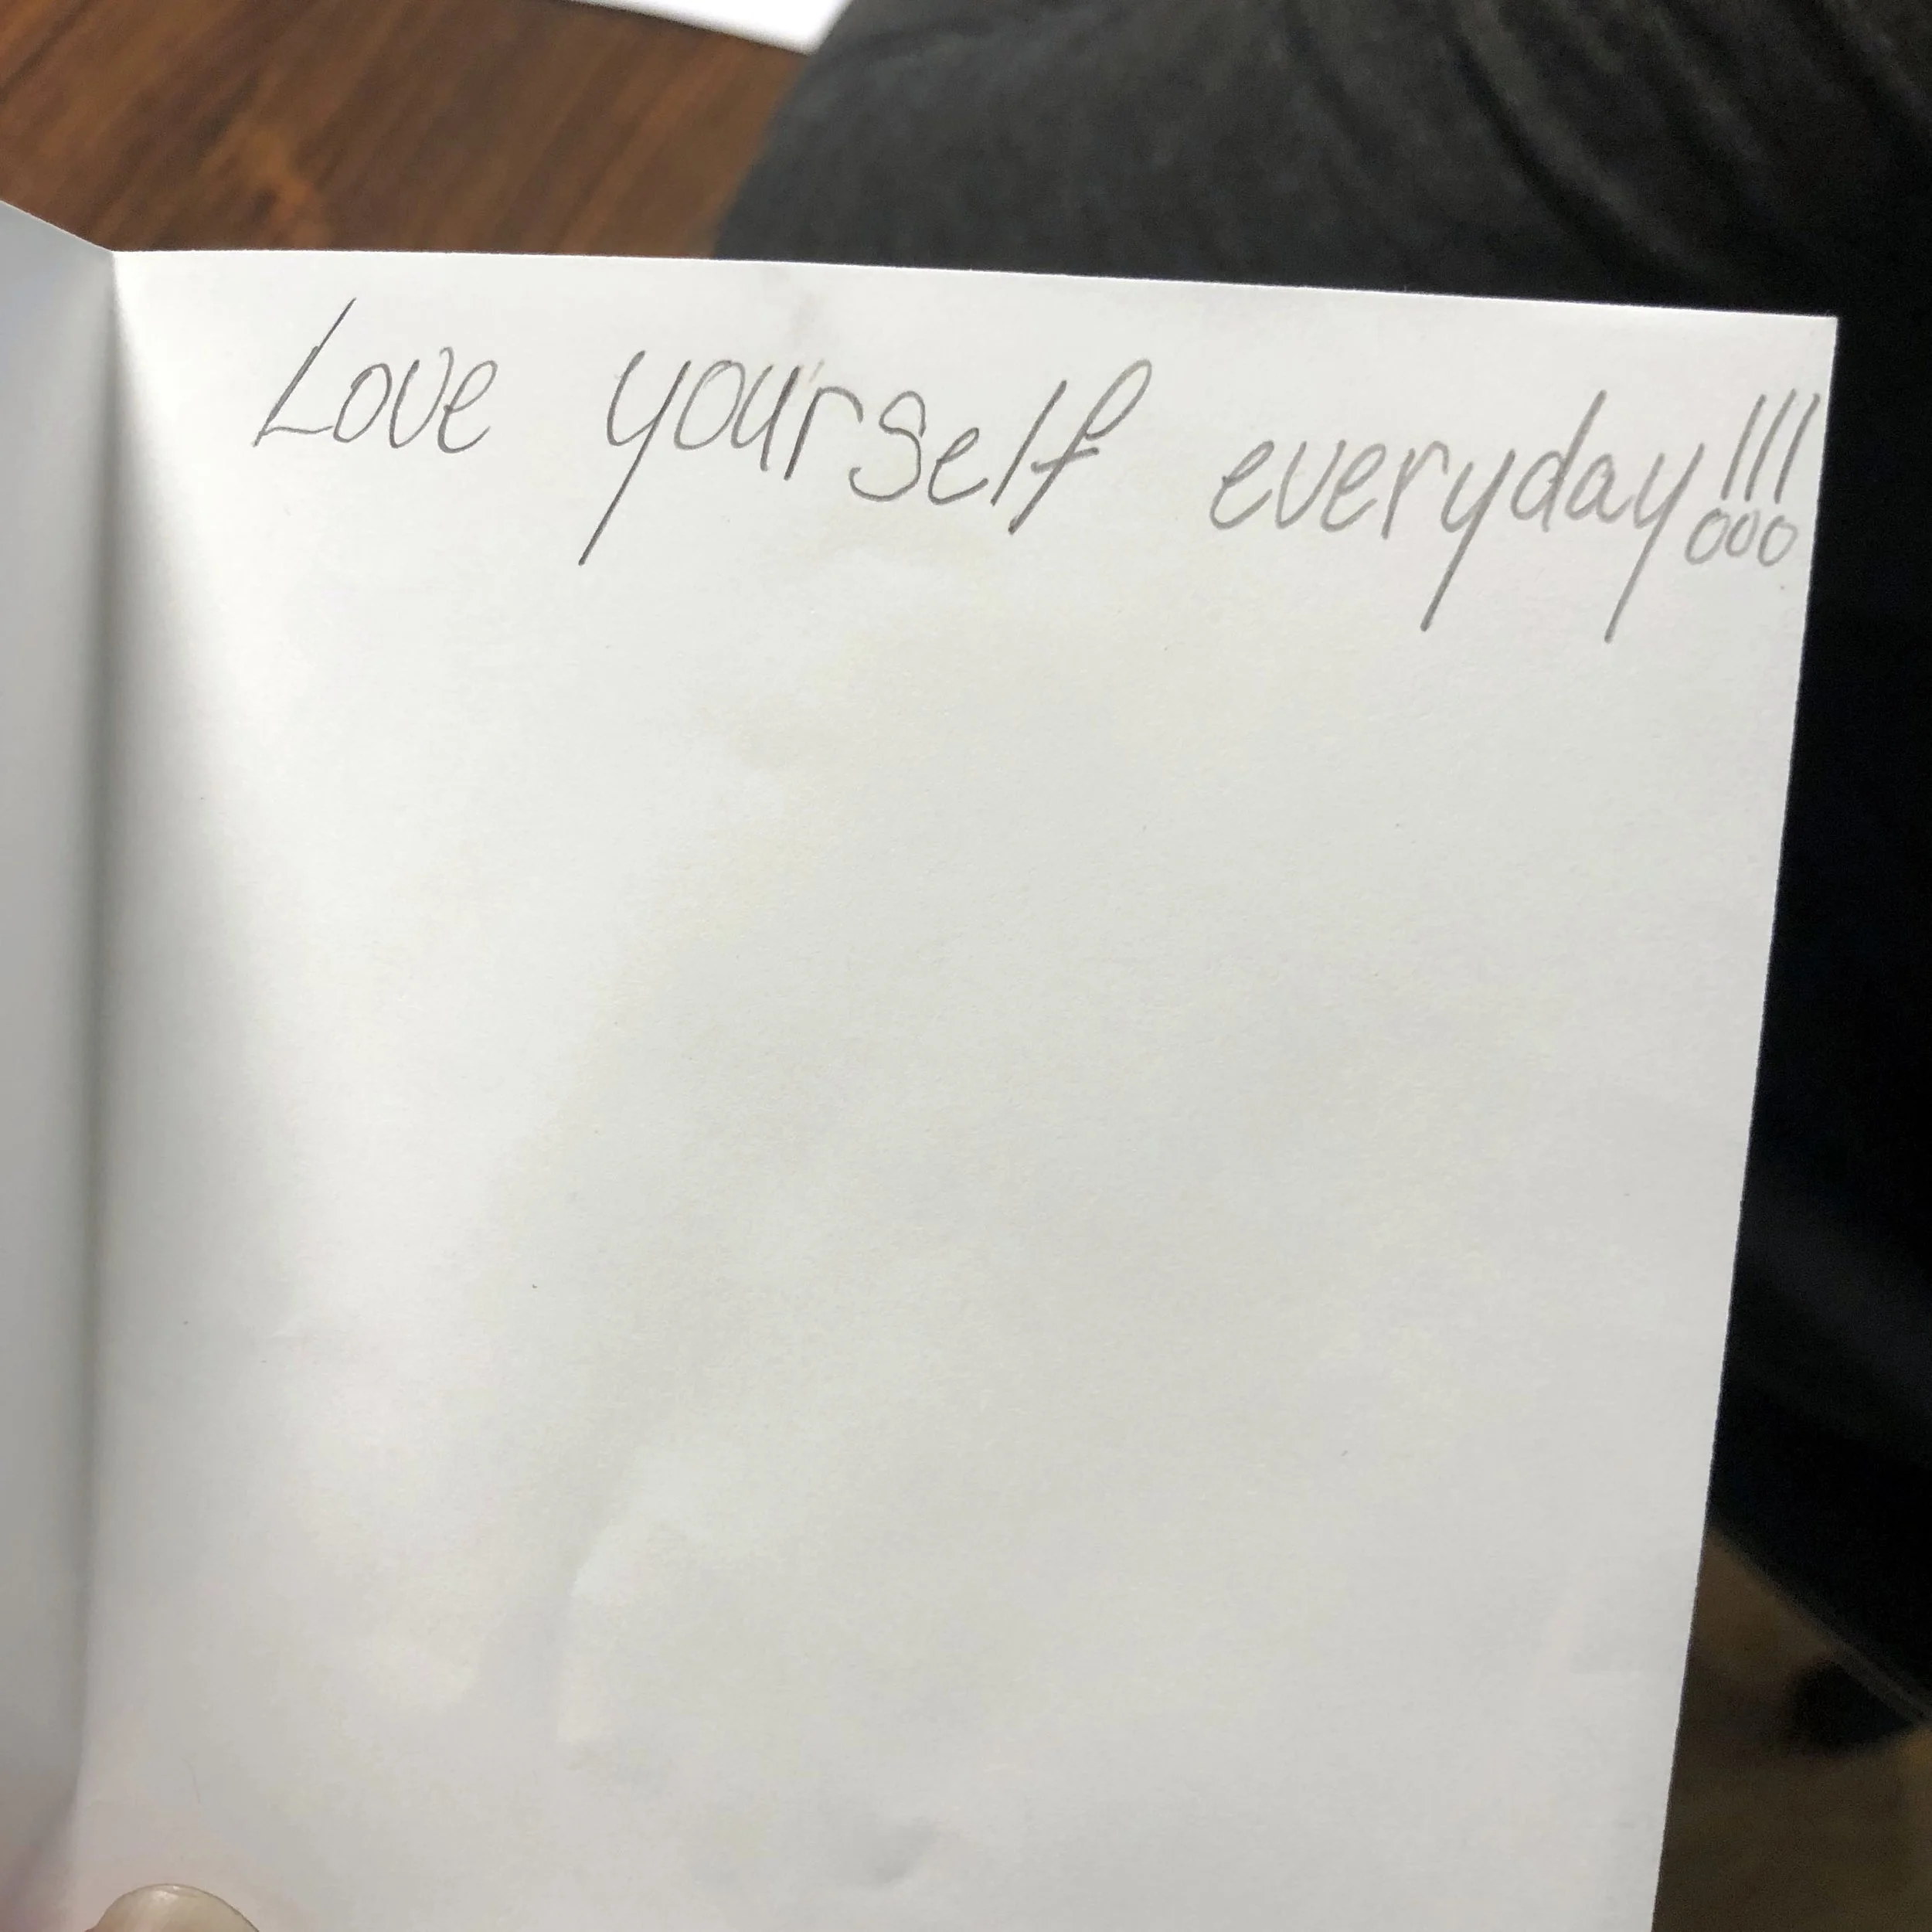 Love yourself everyday!!!